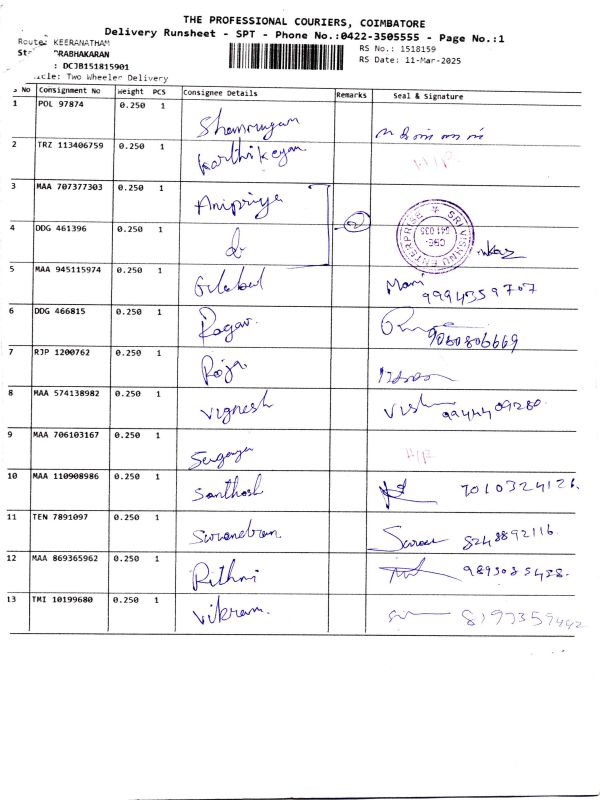 THE PROFESSIONAL COURIERS, COIMBATORE
Delivery Runsheet - SPT - Phone No.:0422-3505555 - Page No.:1
Route: KEERANATHAM
RS No.: 1518159
PRABHAKARAN
RS Date: 11-Mar-2025
: DCJB151815901
Two Wheeler Delivery
S No Consignment No Weight PCS Consignee Details Remarks Seal & Signature
1 POL 97874 0.250 1 Shanmugam
2 TRZ 113406759 0.250 1 Karthikeyan H/P
3 MAA 707377303 0.250 1 Anipriya
4 DDG 461396 0.250 1 2 SRI VISHNU ENTERPRISE CBE- 641 035
5 MAA 945115974 0.250 1 Mani 9994359707
6 DDG 466815 0.250 1 Ragav. 9080806669
7 RJP 1200762 0.250 1 Roja
8 MAA 574138982 0.250 1 Vignesh Vish 9944409280.
9 MAA 706103167 0.250 1 H/P
10 MAA 110908986 0.250 1 Santhosh 7010324126.
11 TEN 7891097 0.250 1 8248892116.
12 MAA 869365962 0.250 1 Rithni
13 TMI 10199680 0.250 1 Vikram.